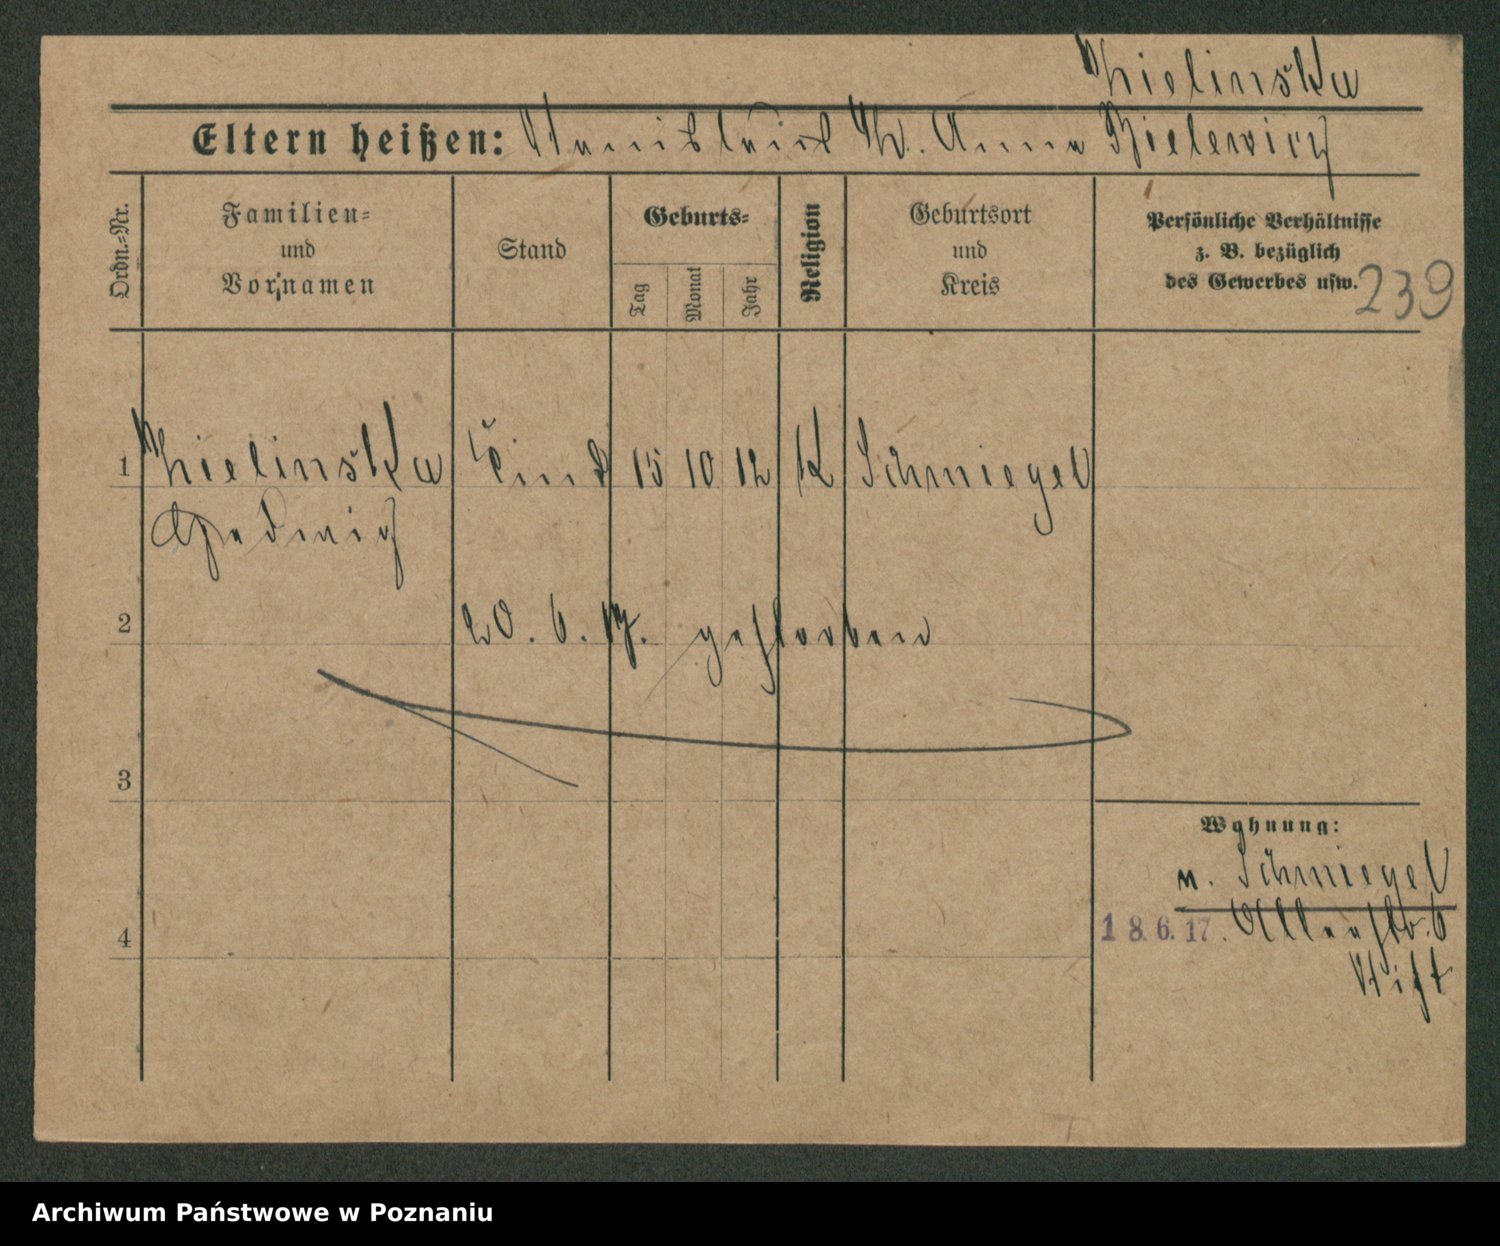 Thielinska
Eltern heißen: Stanislaus Th. Anna Bielewicz
Ordn.=Nr.
Familien=
und
Vornamen
Stand
Geburts=
Tag
Monat
Jahr
Religion
Geburtsort
und
Kreis
Persönliche Verhältnisse
z. B. bezüglich
des Gewerbes usw.
239
1 Thielinska Kind 15 10 12 K Schmiegel
Hedwig
2 20. 6. 17. gestorben
3
Wohnung:
n. Schmiegel
4 18. 6. 17. Allerstr. 6
Stift
Archiwum Państwowe w Poznaniu